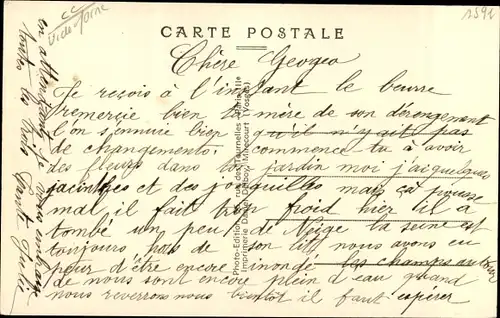 1591
Vide Jorne
CARTE POSTALE
Chère Georgea
Je reçois à l'instant le beurre
remercie bien ta mère de son dérengement
l'on s'ennuie bien qu'il n'y ait pas
de changements. commence tu à avoir
des fleurs dans ton jardin moi j'ai quelques
jacinthes et des jonquilles mais ça pousse
mal il fait trop froid hier il a
tombé un peu de Neige ta seine est
toujours hors de son lit nous avons eu
peur d'être encore inondé les champs autour
de nous sont encore plein d'eau quand
nous reverrons nous bientôt il faut espérer
en attendant je vous embrasse
toutes les trois
Photo-Edition
Imprimerie Daniel Delboy, Mirecourt (Vosges)